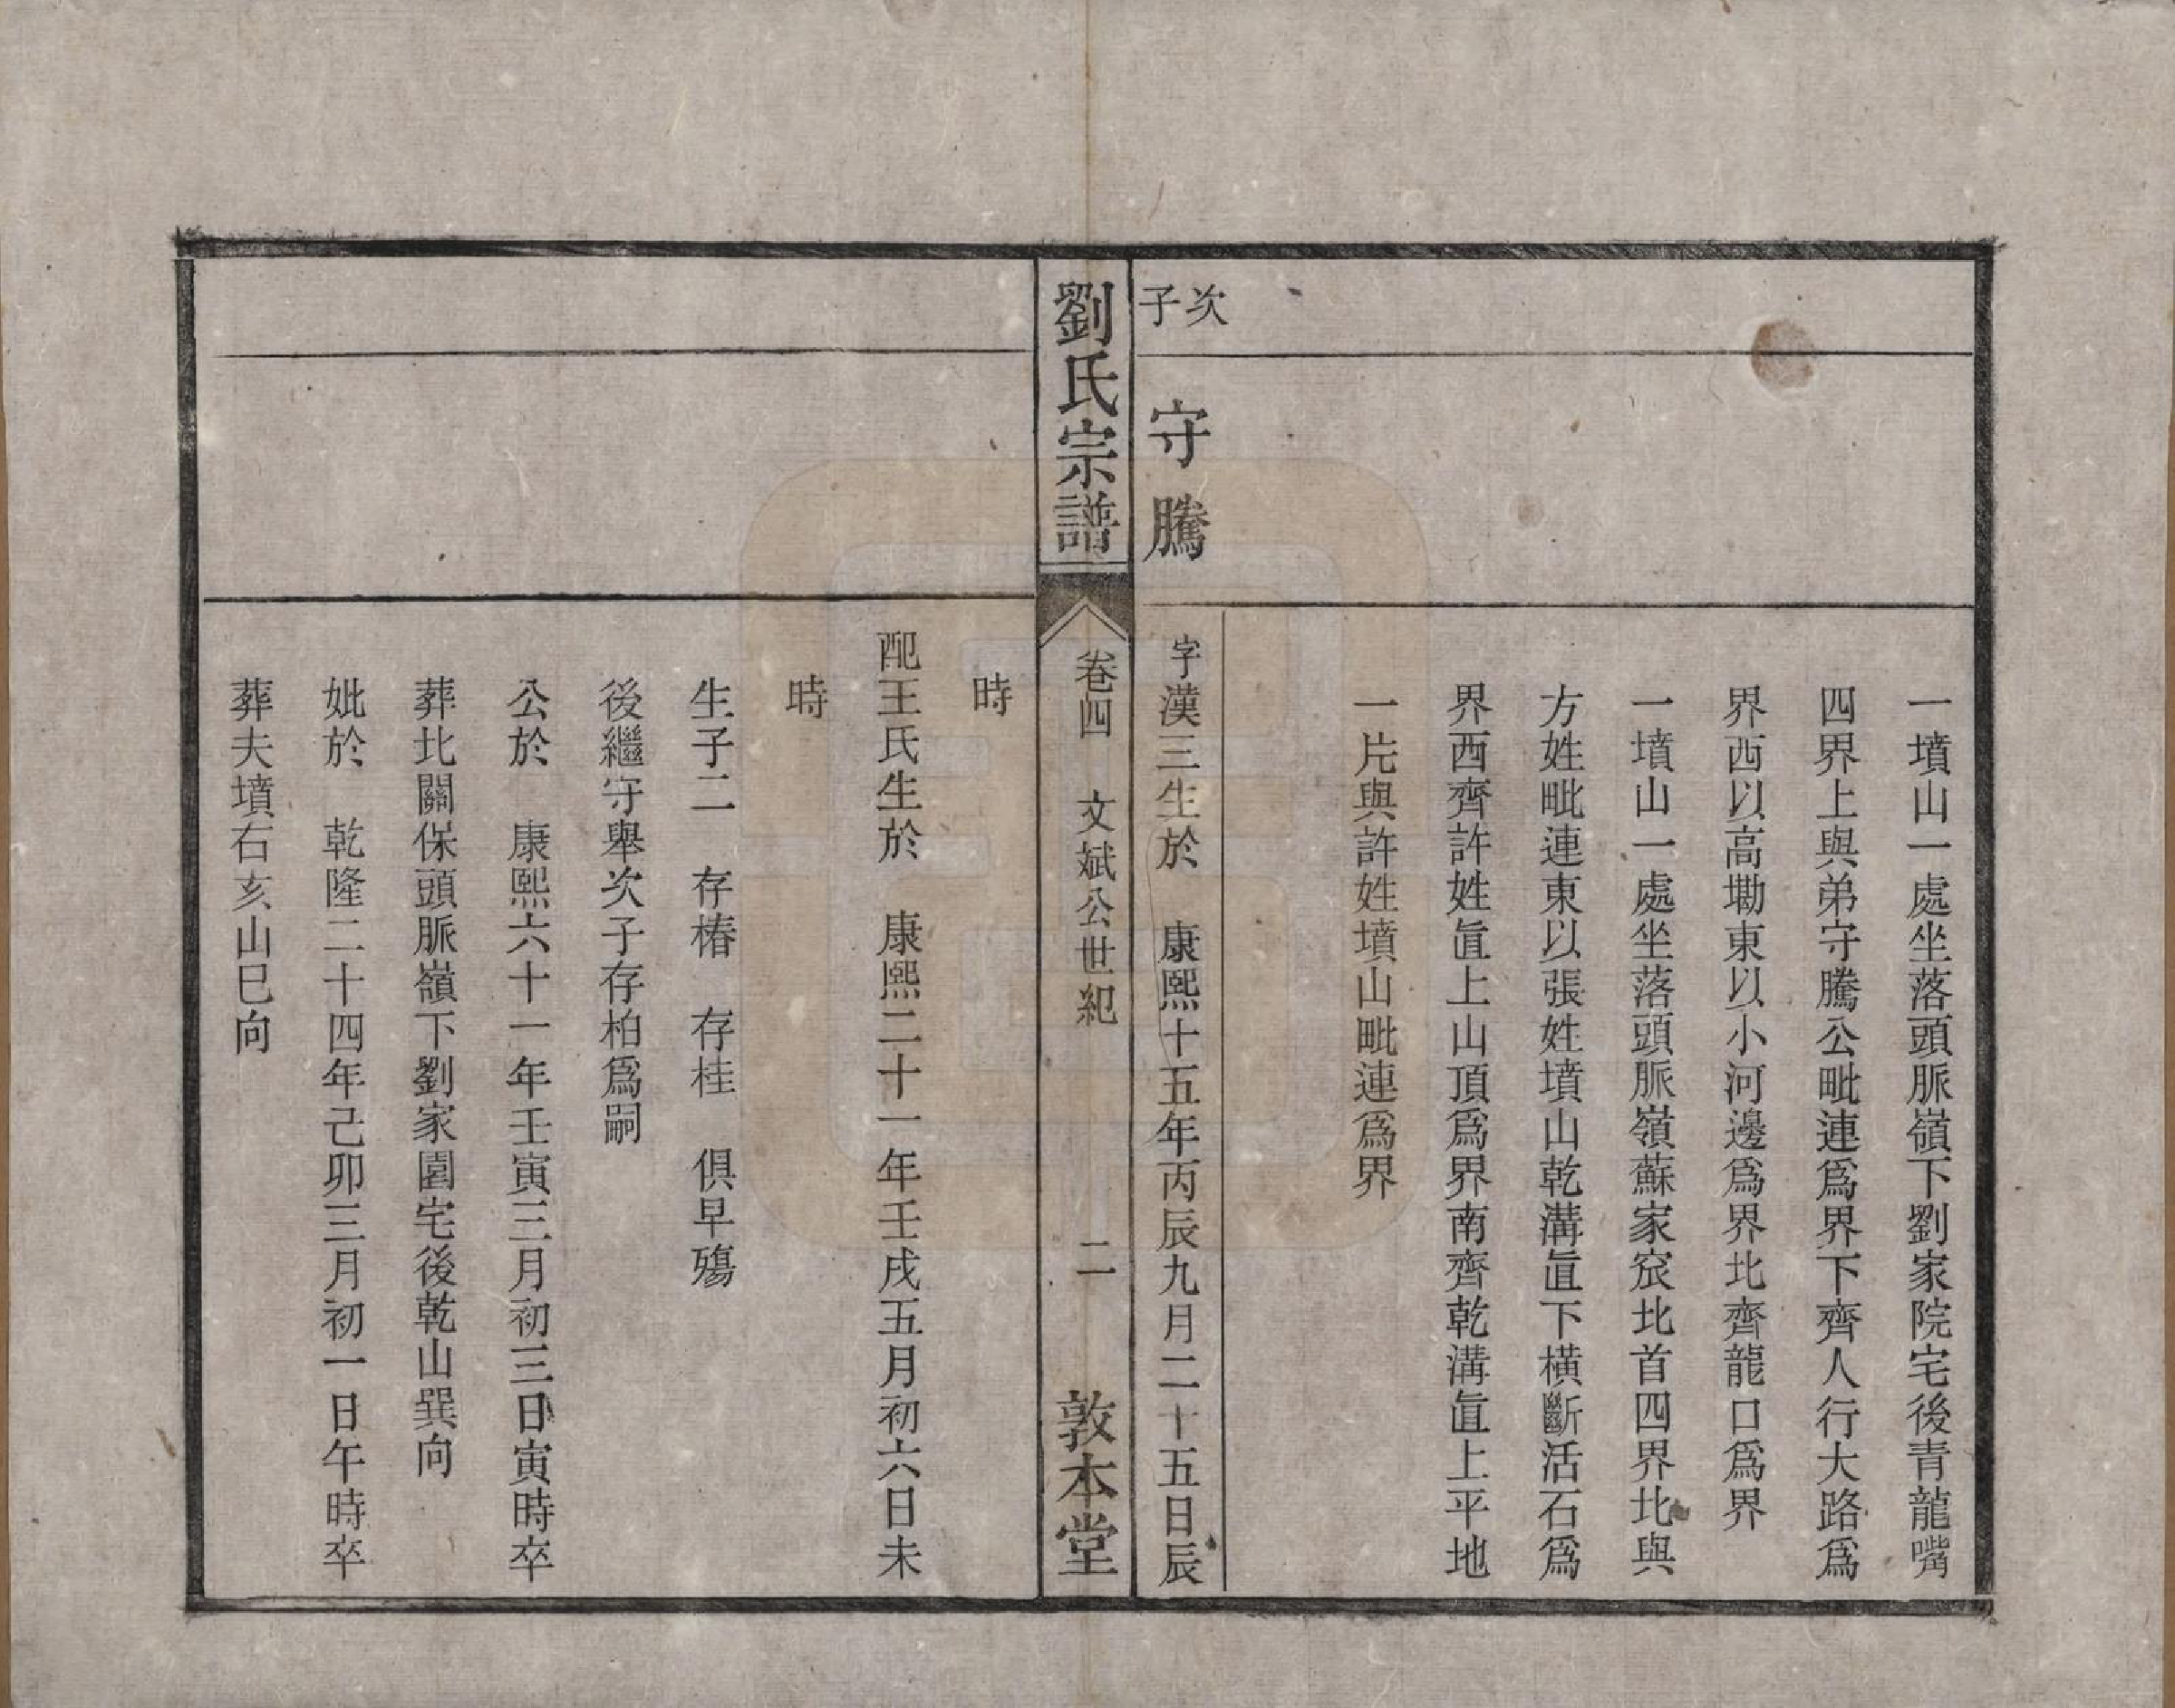 一墳山一處坐落頭脈嶺下劉家院宅後青龍嘴
四界上與弟守騰公毗連爲界下齊人行大路爲
界西以高墈東以小河邊爲界北齊龍口爲界
一墳山一處坐落頭脈嶺蘇家窊北首四界北與
方姓毗連東以張姓墳山乾溝直下橫斷活石爲
界西齊許姓直上山頂爲界南齊乾溝直上平地
一片與許姓墳山毗連爲界
次子
守騰
字漢三生於 康熙十五年丙辰九月二十五日辰
劉氏宗譜
卷四 文斌公世紀 二
敦本堂
時
配王氏生於 康熙二十一年壬戌五月初六日未
時
生子二 存椿 存桂 俱早殤
後繼守舉次子存柏爲嗣
公於 康熙六十一年壬寅三月初三日寅時卒
葬北關保頭脈嶺下劉家園宅後乾山巽向
妣於 乾隆二十四年己卯三月初一日午時卒
葬夫墳右亥山巳向